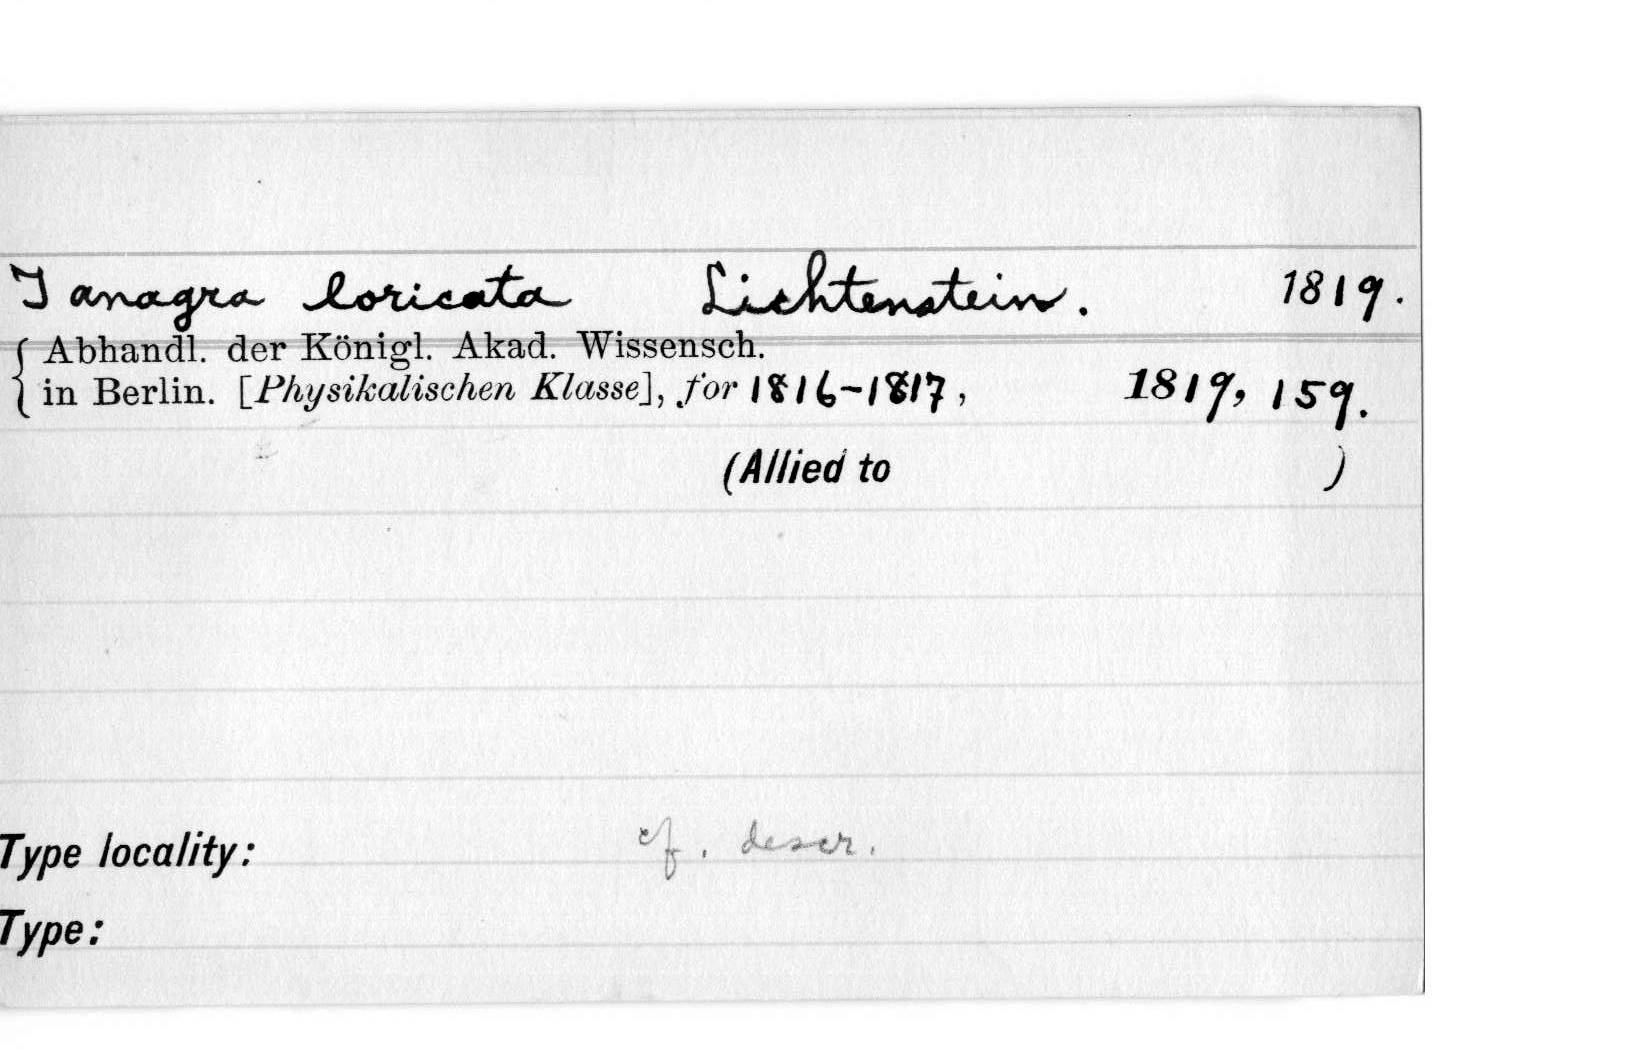 Tanagra loricata Lichtenstein. 1819.
Abhandl. der Königl. Akad. Wissensch.
in Berlin. [Physikalischen Klasse], for 1816-1817, 1819, 159.
(Allied to )
Type locality: cf. descr.
Type: